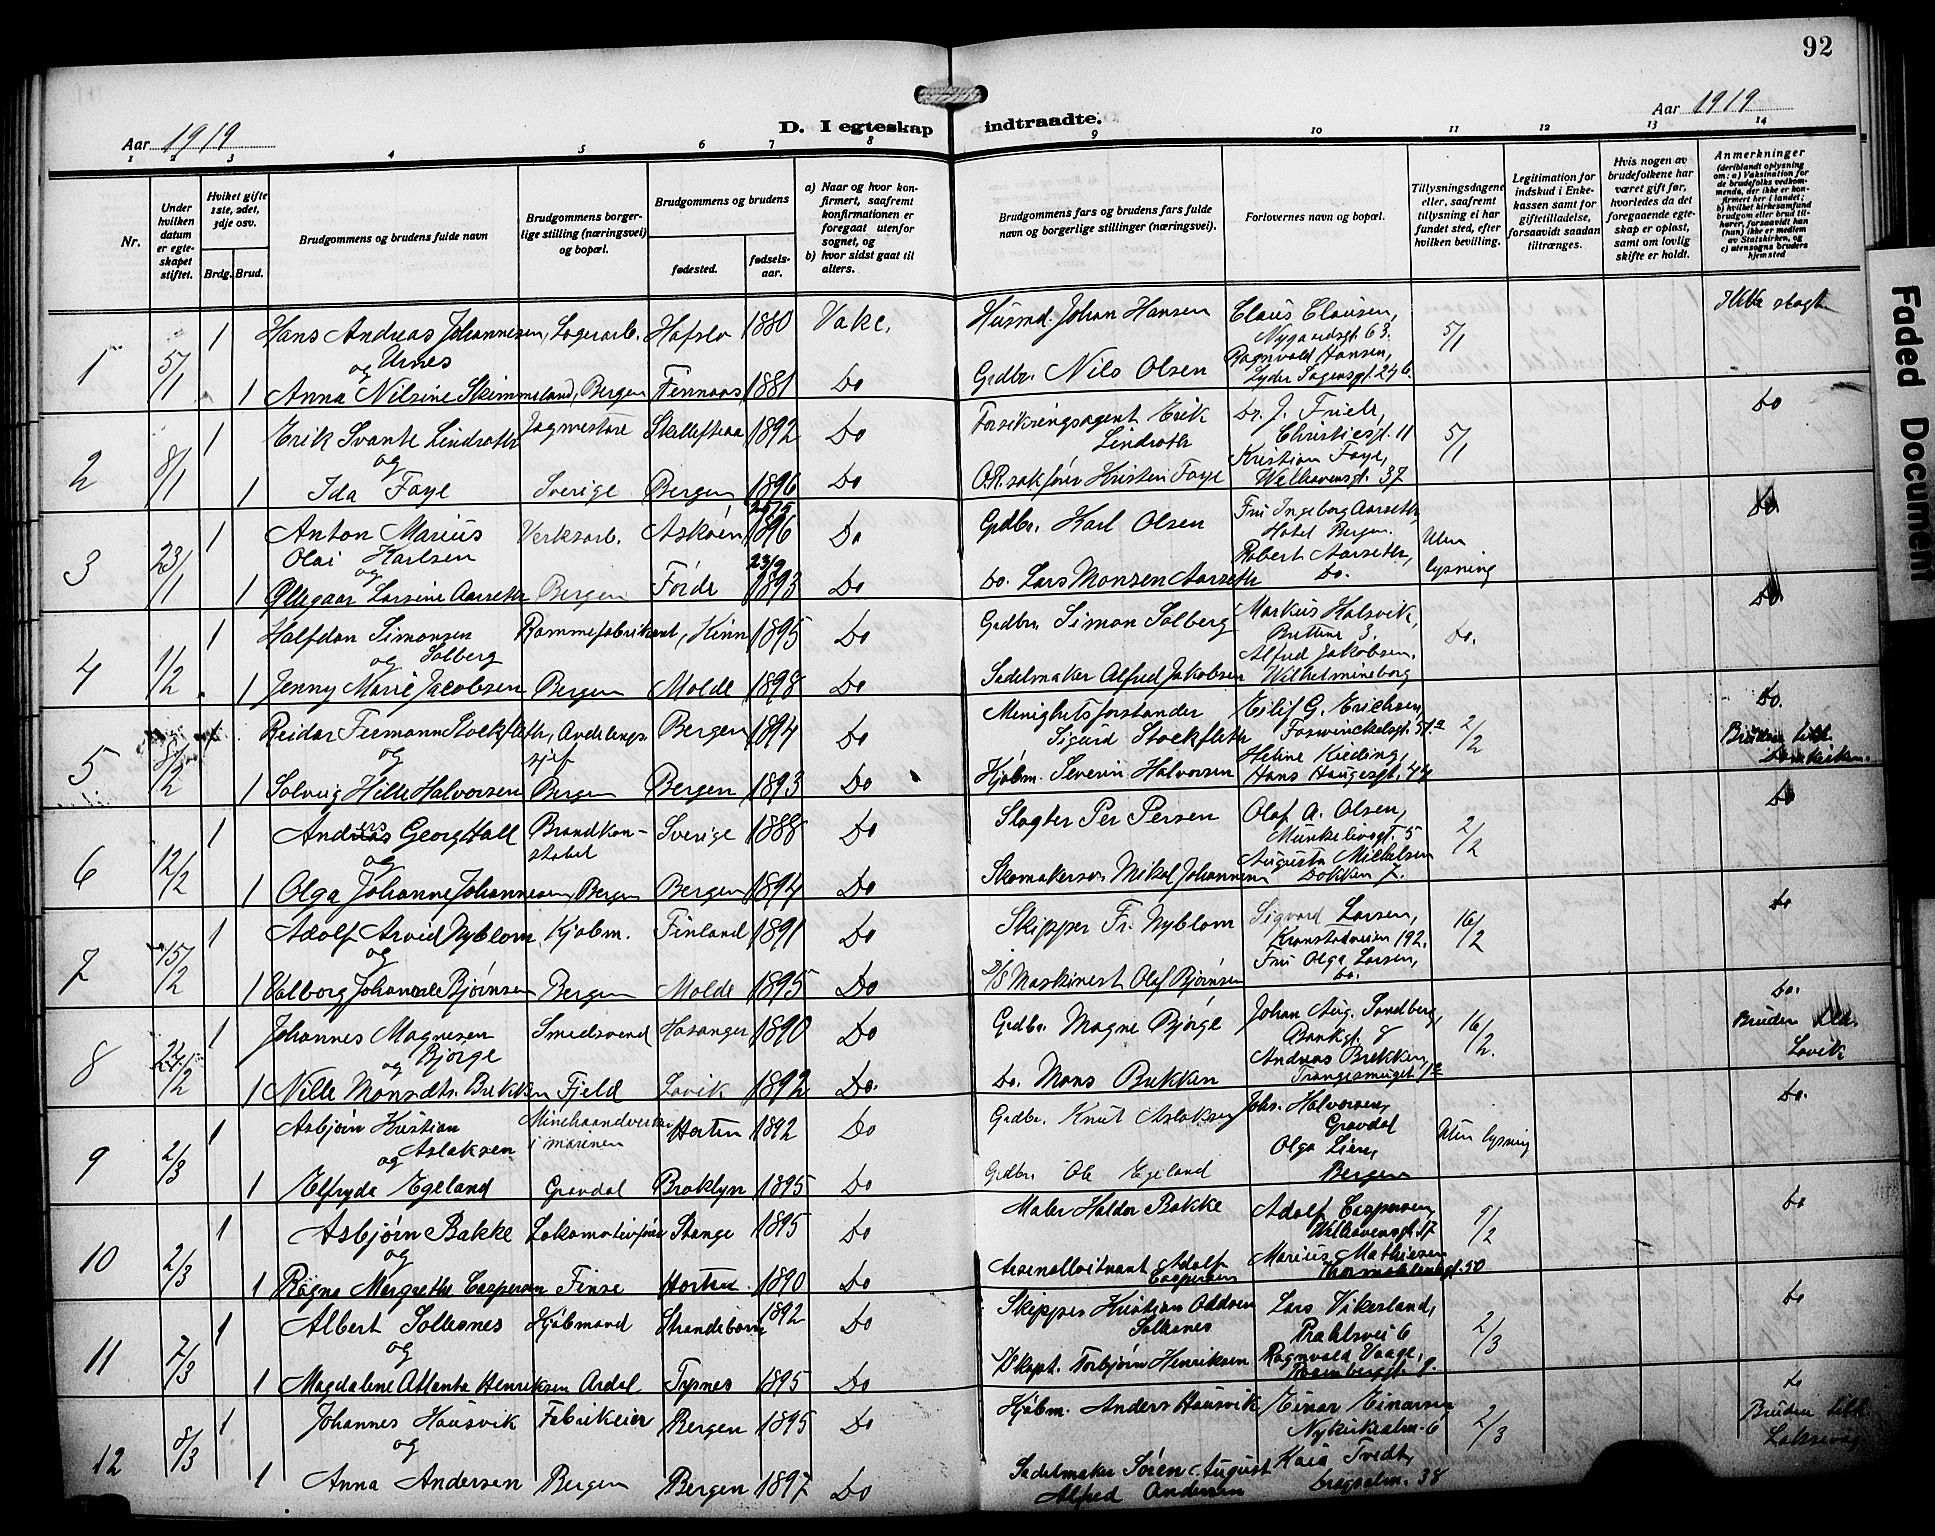 92
Aar 1919
D. I egteskap indtraadte.
Aar 1919
1 2 3 4 5 6 7 8 9 10 11 12 13 14
Nr.
Under hvilken datum er egteskapet stiftet.
Hvilket gifte 1ste, 2det, 3dje osv.
Brdg. Brud.
Brudgommens og brudens fulde navn
Brudgommens borgerlige stilling (næringsvei) og bopæl.
Brudgommens og brudens
fødested.
fødselsaar.
a) Naar og hvor konfirmert, saafremt konfirmationen er foregaat utenfor sognet, og
b) hvor sidst gaat til alters.
Brudgommens fars og brudens fars fulde navn og borgerlige stillinger (næringsvei).
Forlovernes navn og bopæl.
Tillysningsdagene eller, saafremt tillysning ei har fundet sted, efter hvilken bevilling.
Legitimation for indskud i Enkekassen samt for giftetilladelse, forsaavidt saadan tiltrænges.
Hvis nogen av brudefolkene har været gift før, hvorledes da det foregaaende egteskap er opløst, samt om lovlig skifte er holdt.
Anmerkninger
(deriblandt oplysning om: a) Vaksination for de brudefolks vedkommende, der ikke er konfirmert her i landet; b) hvilket kirkesamfund brudgom eller brud tilhører, forsaavidt han (hun) ikke er medlem av Statskirken, og c) utensogns bruders hjemsted
1 5/1 1 Hans Andreas Johannesen, Lagerarb. Hafslo 1880 Vake. Husmd. Johan Hansen Claus Clausen, 5/1 Ikke slegt
og Urnes Nygaardsgt. 63.
1 Anna Nilsine Skimmeland, Bergen Finnaas 1881 Do Grdbr. Nils Olsen Ragnvald Hansen,
Lyder Sagensgt. 24 b.
2 8/1 1 Erik Svante Lindroth Jægmestare Skellefteaa 1892 Do Forsikringsagent Erik Lindroth Dr. J. Friele, 5/1 Do
og Christiesgt. 11
1 Ida Faye Sverige Bergen 1896 Do O.R.sakfører Kristen Faye Kristian Faye,
Welhavensgt. 37
3 23/1 1 Anton Marius Verksarb. Askøen 25/5 1896 Do Grdbr. Karl Olsen Fru Ingeborg Aarseth, Uten lysning Do
Olai Karlsen Hotel Bergen.
og Robert Aarseth,
1 Ollegaar Larsine Aarseth Bergen Førde 23/9 1893 Do Do. Lars Monsen Aarseth Do.
4 1/2 1 Halfdan Simonsen Rammefabrikant, Kinn 1895 Do Grdbr. Simon Solberg Markus Halsvik, Do. Do
og Solberg 3.
Alfred Jakobsen,
1 Jenny Marie Jacobsen Bergen Molde 1898 Do Sadelmaker Alfred Jakobsen Wilhelmineborg
5 8/2 1 Reidar Fermann Stockfleth, Avdelings Bergen 1894 Do Menighetsforstander Eilif G. Erichsen, 2/2 Do.
og sjef Sigurd Stockfleth Foswinckelsgt. Bruden tilh.
Domkirken.
1 Solveig Hille Halvorsen Bergen Bergen 1893 Do Kjøbm. Severin Halvorsen Hans Haugesgt. 44
6 12/2 1 Andreas Georg Hall Brandkonstabel Sverige 1888 Do Slagter Per Persen Olaf A. Olsen, 2/2 Do
og Munkelivsgt. 5
Augusta Michelsen
1 Olga Johanne Johannesen, Bergen Bergen 1894 Do Skomakersv. Mikal Johannesen Dokken 7.
7 15/2 1 Adolf Arvid Nyblom, Kjøbm. Finland 1891 Do Skipper Fr. Nyblom Sigvard Larsen, 16/2 Do
og Kronstadveien 192.
Fru Olga Larsen,
1 Valborg Johanne Bjørnsen Bergen Molde 1895 Do D/S Maskinest Olaf Bjørnsen Do.
8 /2 1 Johannes Magnesen Smedsvend Hosanger 1890 Do Grdbr. Magne Bjørge Johan Aug. Sandberg, 16/2. Do.
og Bjørge Bankgt. 8 Bruden
Andreas Brekken, Lavik
1 Nille Monsdtr. Brekken Fjeld Lavik 1892 Do. Do. Mons Brekken
9 2/3 1 Asbjørn Kristian Minehaandverker Horten 1892 Do Grdbr. Knut Aslaksen Johs. Halvorsen, Uten lysning Do.
og Aslaksen i marinen Gravdal
Olga Lien,
1 Elfryda Egeland Gravdal Broklyn 1895 Do Grdbr. Ole Egeland Bergen
10 2/3 1 Asbjørn Bakke Lokomotivfører Stange 1895 Do Maler Halder Bakke Adolf Caspersen, 9/2 Do
og Welhavensgt. 17
Marius Mathiesen
1 Ragna Margrethe Caspersen Finse Horten 1890 Do Arsenalløitnant Adolf Caspersen Thormøhlensgt. 50
11 7/3 1 Albert Solesnes Kjøbmand Strandebarm 1892 Do Skipper Kristian Oddsen Solesnes Lars Vikesland, 2/3 Do
og Prahlsvei 6
Ragnvald Vaage,
1 Magdalene Atlanta Henriksen Ardal Tysnes 1895 Do Skapt. Torbjørn Henriksen
12 8/3 1 Johannes Hausvik Fabrikeier Bergen 1895 Do Kjøbm. Anders Hausvik Einar Einarsen 2/3 Do
og Nykirkealm. 6 Bruden tilh.
Laksevåg
1 Anna Andersen Bergen Bergen 1897 Do Sadelmaker Søren August Alfred Andersen Kaia Tvedt,
38
Faded Document